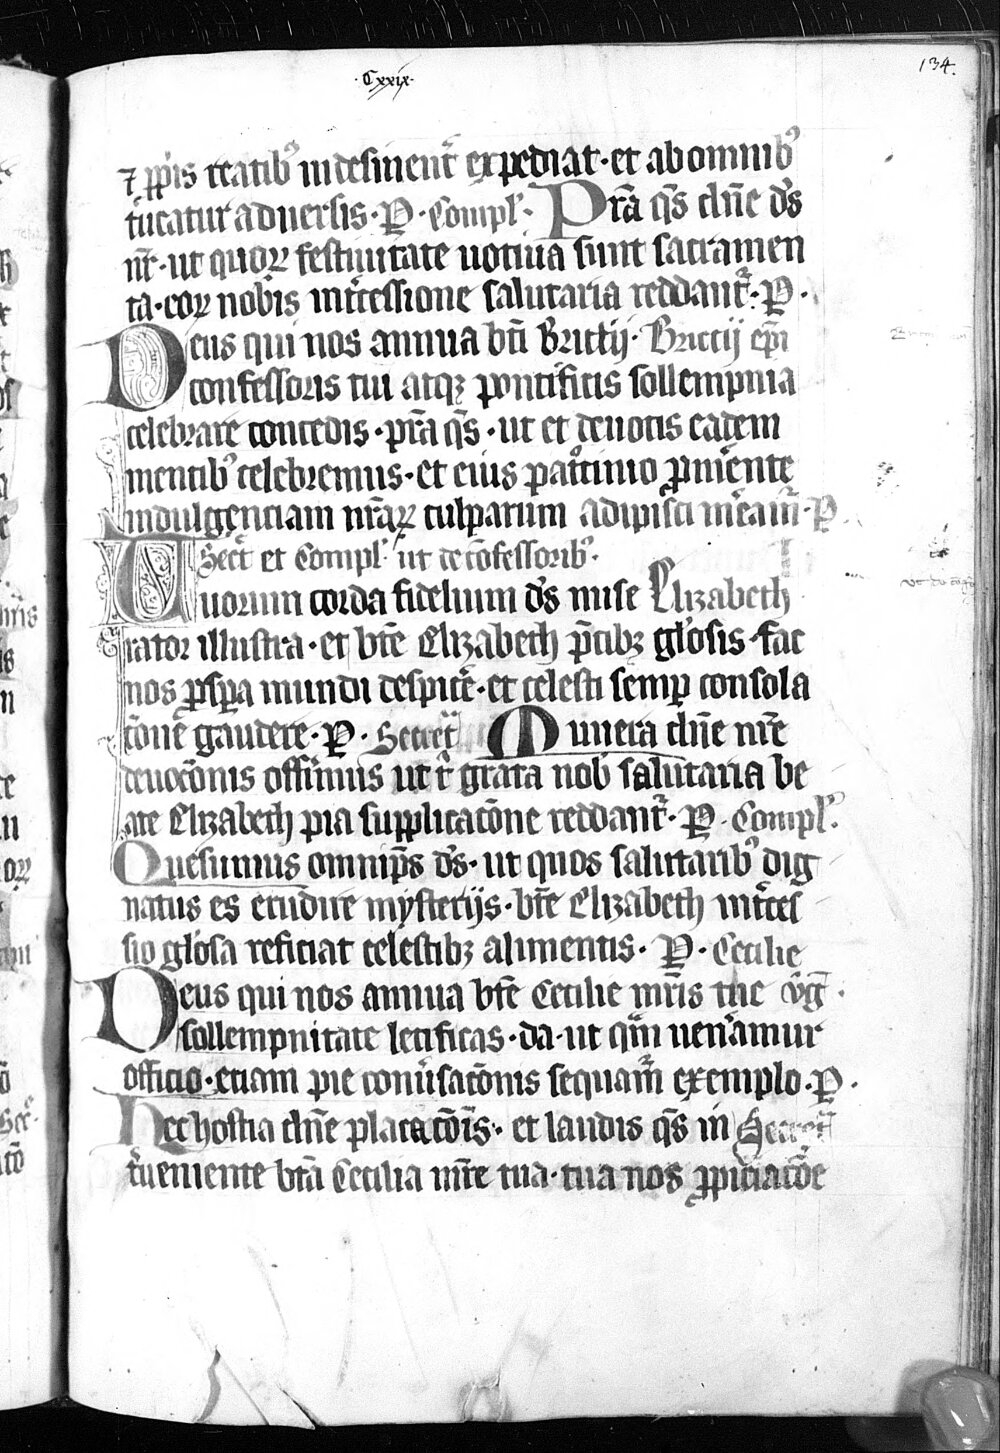 ·Cxxix·
134.
⁊ ꝓp̄is reatibꝰ indesinent̄ expediat · et ab omnibꝰ
tucatur aduersis · P · Compl̄ · Pr̄a qs̄ dn̄e ds̄
nr̄ · ut quoꝝ festiuitate uotiua sunt sacramen
ta · eoꝝ nobis int̄cessione salutaria reddant̄ · P ·
Deus qui nos annua bt̄i Brictij · Briccij ep̄i
confessoris tui atqꝫ pontificis sollempnia
celebrare concedis · pr̄a qs̄ · ut et deuotis eadem
mentibꝰ celebremus · et eius pat̄cinio ꝓmēnte
indulgenciam nr̄aꝝ culparum adipisci meam̄ · P
Sect̄ et Compl̄ · ut de c̄fessoribꝰ ·
Tuorum corda fidelium ds̄ mise Elizabeth
rator illustra · et bt̄e Elizabeth p̄cibꝫ gl̄osis · fac
nos ꝓsꝑa mundi despic̄e · et celesti semꝑ consola
c̄one gaudere · P · Secret̄ Munera dn̄e nr̄e
deuoc̄onis offim̄us ut t̄ grata nob̄ salutaria be
ate Elizabeth pia supplicac̄one reddant̄ · P · Compl̄ ·
Quesumus omnip̄s ds̄ · ut quos salutaribꝰ dig
natus es erudire mysterijs · bt̄e Elizabeth int̄ces
sio gl̄osa reficiat celestibꝫ alimentis · P · Cecilie
Deus qui nos annua bt̄e Cecilie mr̄is tue v̄ḡ ·
sollempnitate letificas · da · ut qm̄ uen̄amur
officio · etiam pie conūsac̄onis sequam̄ exemplo · P ·
Hec hostia dn̄e placac̄ōis · et laudis qs̄ in Secret̄
t̄ueniente bt̄a Cecilia mr̄e tua · tua nos ꝓpiciac̄oe